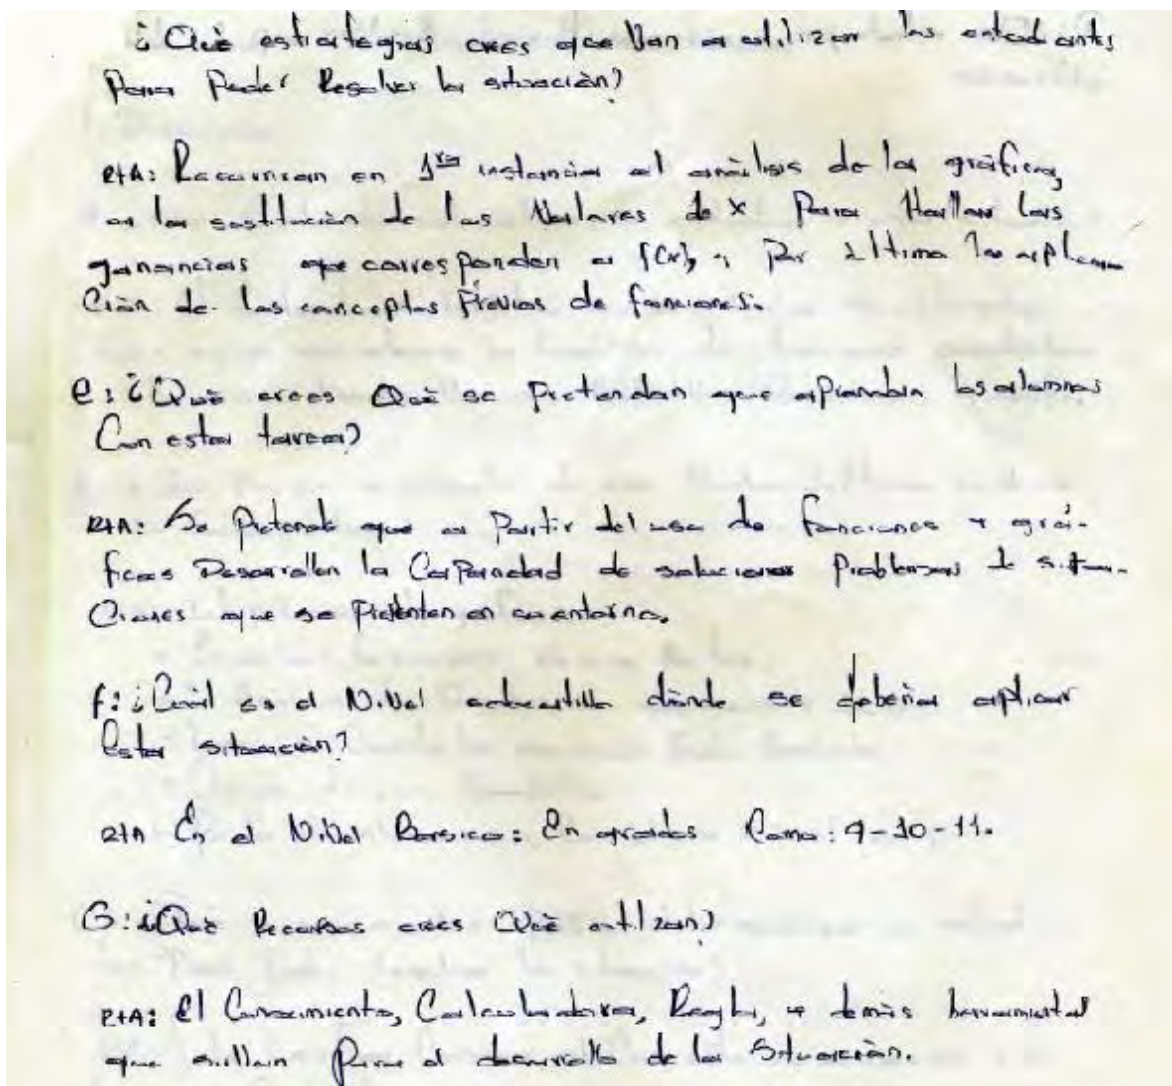 ¿Qué estrategias crees que Van a utilizar los estudiantes
Para Poder Resolver la situación?
RtA: Recurriran en 1ra instancia al análisis de la gráfica,
a la sustitución de los Valores de x Para Hallar las
ganancias que corresponden a f(x), y por último la aplica
Ción de los conceptos Previos de funciones.
e: ¿Qué crees Qué se Pretendan que aprendan los alumnos
Con esta tarea?
RtA: Se Pretende que a Partir del uso de funciones y grá-
ficas Desarrollen la Capacidad de solucionar Problemas de situa-
Ciones que se Presenten en su entorno.
f: ¿Cuál es el Nivel educativo dónde se debería aplicar
Esta situación?
RtA En el Nivel Básico: En grados Como: 9-10-11.
G: ¿Qué Recursos crees Qué utilizan?
RtA: El Conocimiento, Calculadora, Regla, y demás
que para el desarrollo de la Situación.